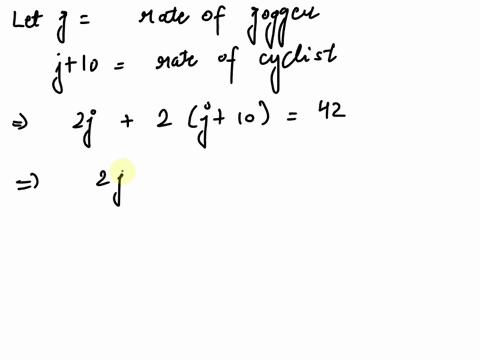 Let j = rate of jogger
j+10 = rate of cyclist
⇒ 2j + 2 (j+10) = 42
⇒ 2j